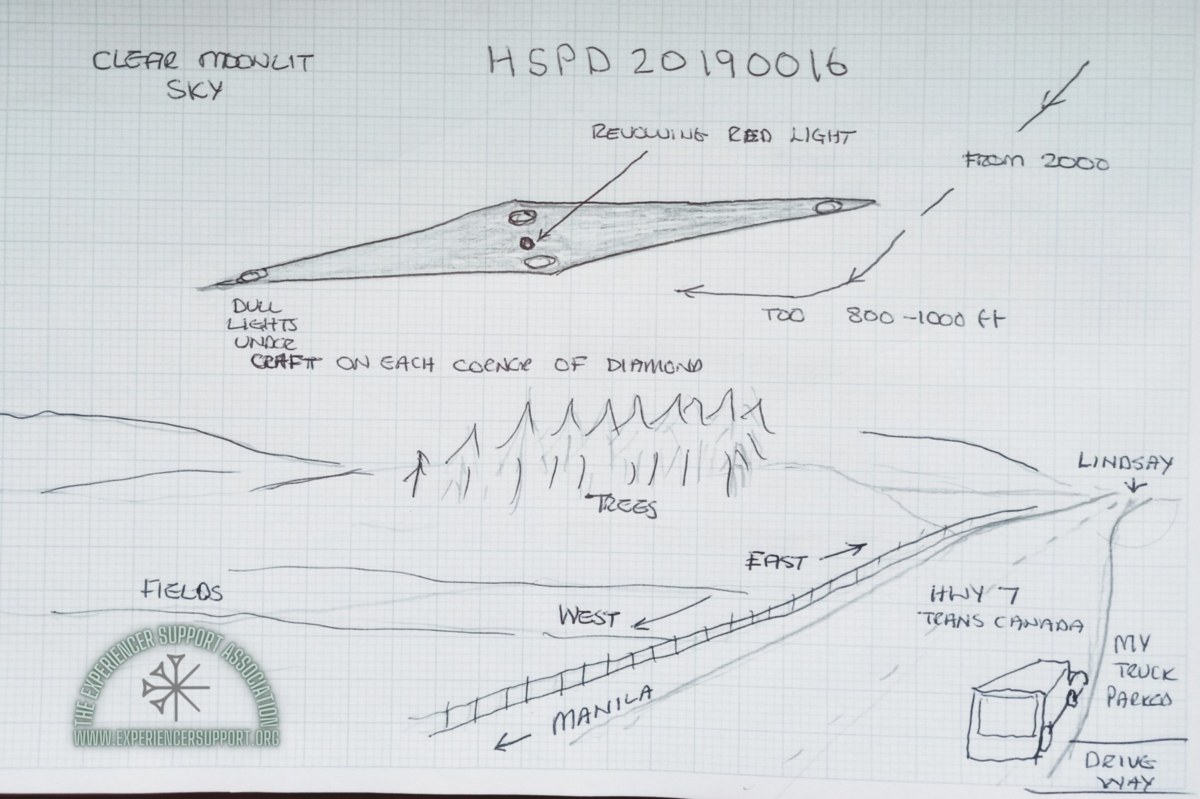 CLEAR MOONLIT
SKY
HSPD 20190016
REVOLVING RED LIGHT
FROM 2000
TOO 800-1000 ft
DULL
LIGHTS
UNDER
CRAFT ON EACH CORNER OF DIAMOND
TREES
LINDSAY
EAST
WEST
FIELDS
HWY 7
TRANS CANADA
MANILA
MY
TRUCK
PARKED
DRIVE
WAY
THE EXPERIENCER SUPPORT ASSOCIATION
WWW.EXPERIENCERSUPPORT.ORG